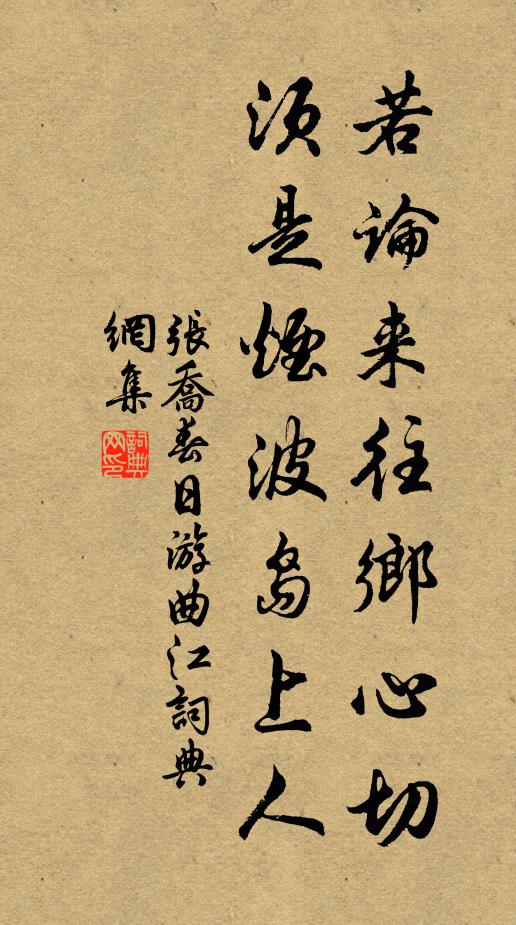 若論来往鄉心切
須是煙波島上人
張喬春日游曲江詞典
網集
詞典
网印